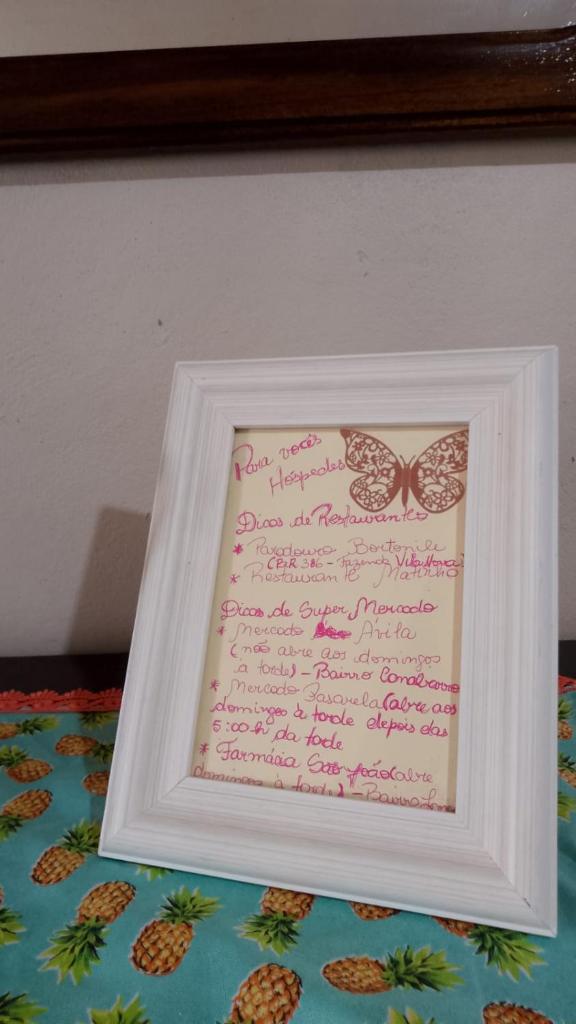 Para vocês
Hóspedes
Dicas de Restaurantes
* Paradouro
(BR 386 - Fazenda Vila Nova)
* Restaurante
Dicas de Super Mercado
* Mercado Ávila
(não abre aos domingos
à tarde) - Bairro
* Mercado (abre aos
domingos à tarde depois das
5:00h da tarde
* Farmácia São João (abre
domingos à tarde) - Bairro